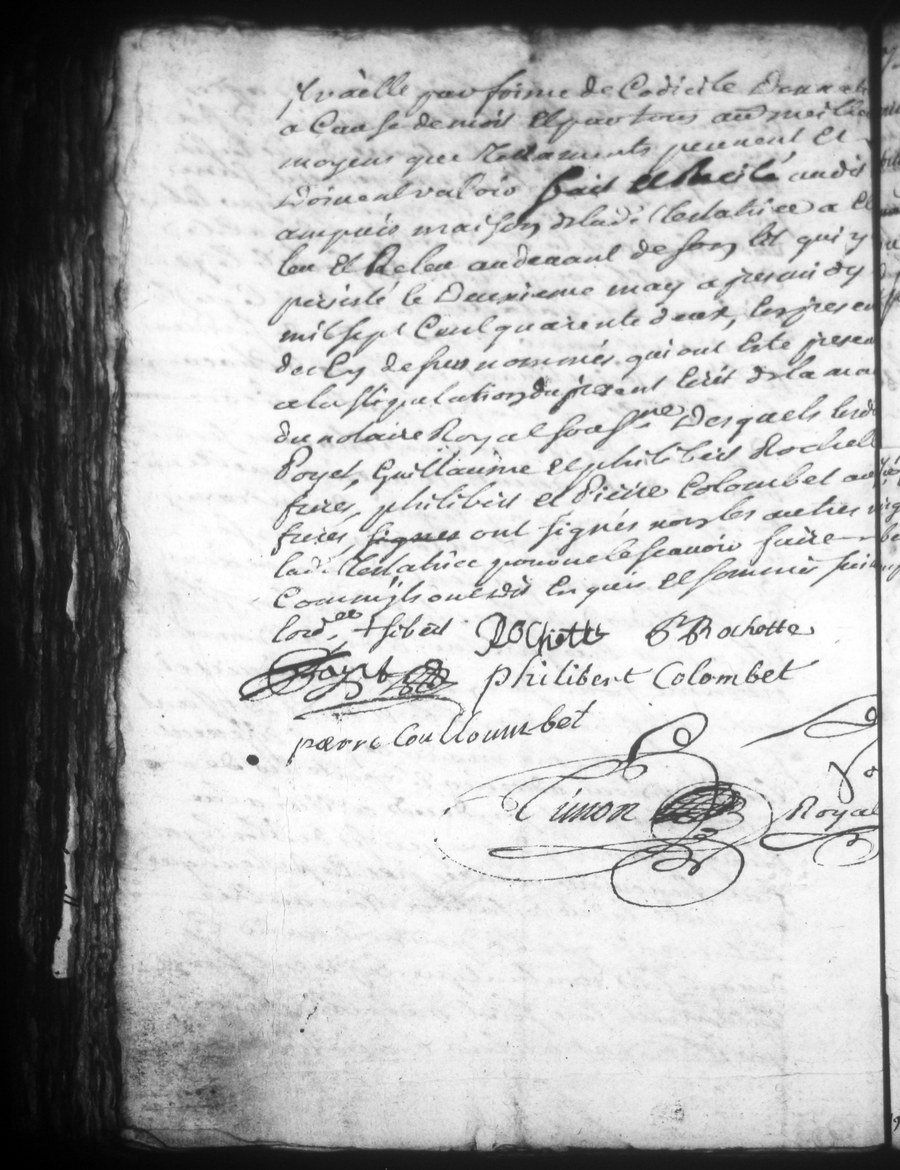 par forme de Codicile Donna
a Cause de mort Et par tous au meille
moyens que Testaments peuvent Et
Doivent valoir fait et Recité audit
maison de lad. testatrice a
leu Et Releu audevant de son lit qui y
persisté le Deuxieme may apres midy
mil sept Cent quarente deux, les presen
de susnommés qui ont Esté presen
a la stipulation du present Ecrit de la ma
du notaire Royal soussne Desquels led
Poyet, Guillaume et philibert Rochet
freres, philibert et Pierre Colombet au
freres signes ont signés non les autres ny
lad. testatrice pour ne le scavoir faire
Comme ils ont dit Enquis et sommés sui
lordce
Rochette P Rochette
Poyet philibert Colombet
pierre Coulloumbet
Timon Royal